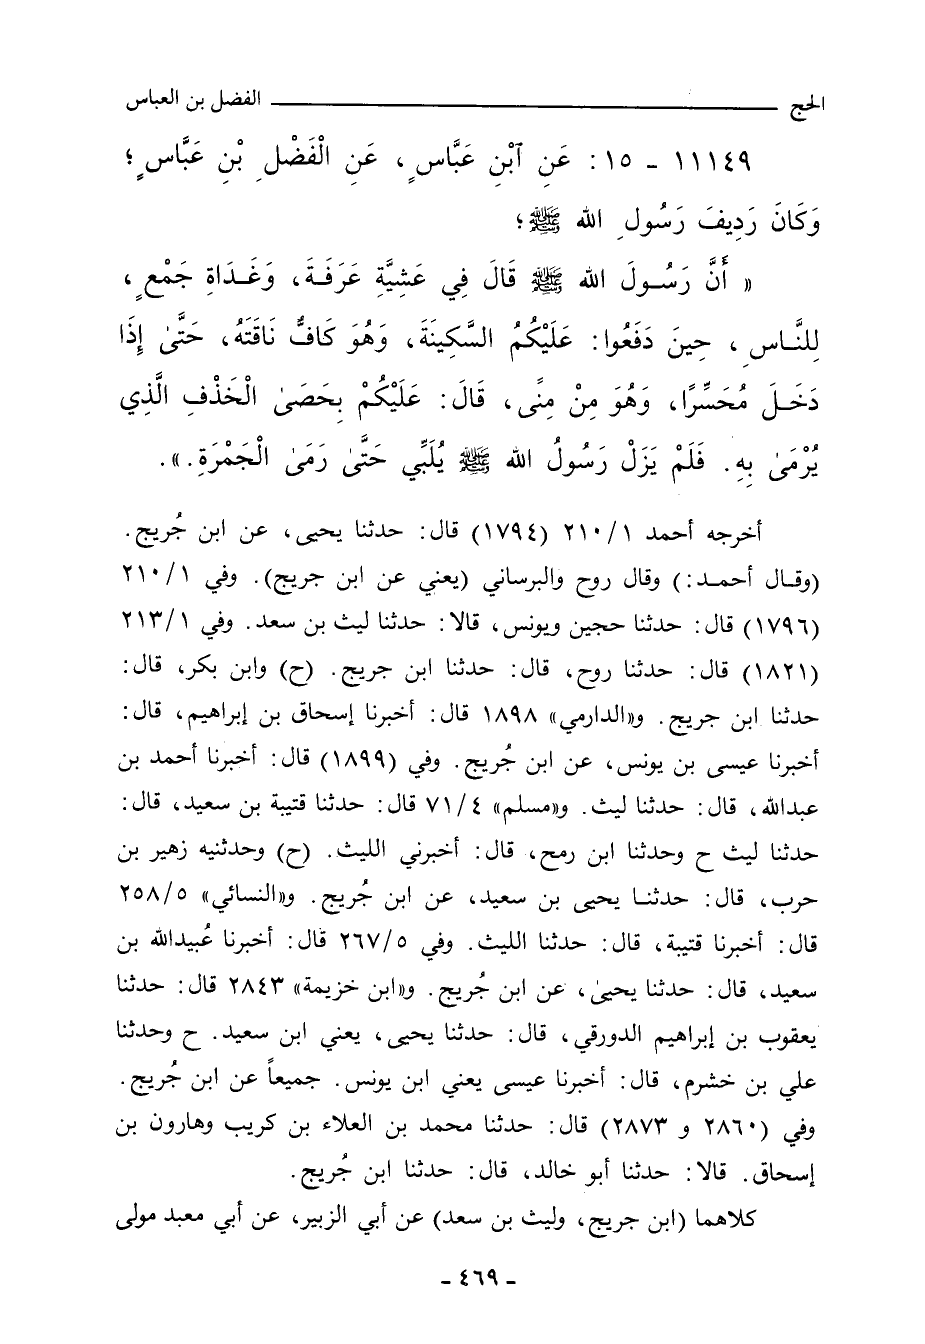 الحج ــــــــــ الفضل بن العباس
١١١٤٩ - ١٥ : عَنِ ٱبْنِ عَبَّاسٍ ، عَنِ الْفَضْلِ بْنِ عَبَّاسٍ ؛
وَكَانَ رَدِيفَ رَسُولِ الله ﷺ ؛
« أَنَّ رَسُولَ الله ﷺ قَالَ فِي عَشِيَّةِ عَرَفَةَ، وَغَدَاةِ جَمْعٍ ،
لِلنَّاسِ ، حِينَ دَفَعُوا: عَلَيْكُمُ السَّكِينَةَ، وَهُوَ كَافٌّ نَاقَتَهُ، حَتَّىٰ إِذَا
دَخَلَ مُحَسِّرًا، وَهُوَ مِنْ مِنًى، قَالَ: عَلَيْكُمْ بِحَصَىٰ الْخَذْفِ الَّذِي
يُرْمَىٰ بِهِ. فَلَمْ يَزَلْ رَسُولُ الله ﷺ يُلَبِّي حَتَّىٰ رَمَىٰ الْجَمْرَةِ.».
أخرجه أحمد ٢١٠/١ (١٧٩٤) قال: حدثنا يحيى، عن ابن جُريج.
(وقال أحمد:) وقال روح والبرساني (يعني عن ابن جريج). وفي ٢١٠/١
(١٧٩٦) قال: حدثنا حجين ويونس، قالا: حدثنا ليث بن سعد. وفي ٢١٣/١
(١٨٢١) قال: حدثنا روح، قال: حدثنا ابن جريج. (ح) وابن بكر، قال:
حدثنا ابن جريج. و«الدارمي» ١٨٩٨ قال: أخبرنا إسحاق بن إبراهيم، قال:
أخبرنا عيسى بن يونس، عن ابن جُريج. وفي (١٨٩٩) قال: أخبرنا أحمد بن
عبدالله، قال: حدثنا ليث. و«مسلم» ٧١/٤ قال: حدثنا قتيبة بن سعيد، قال:
حدثنا ليث ح وحدثنا ابن رمح، قال: أخبرني الليث. (ح) وحدثنيه زهير بن
حرب، قال: حدثنا يحيى بن سعيد، عن ابن جُريج. و«النسائي» ٢٥٨/٥
قال: أخبرنا قتيبة، قال: حدثنا الليث. وفي ٢٦٧/٥ قال: أخبرنا عُبيدالله بن
سعيد، قال: حدثنا يحيىٰ، عن ابن جُريج. و«ابن خزيمة» ٢٨٤٣ قال: حدثنا
يعقوب بن إبراهيم الدورقي، قال: حدثنا يحيى، يعني ابن سعيد. ح وحدثنا
علي بن خشرم، قال: أخبرنا عيسى يعني ابن يونس. جميعاً عن ابن جُريج.
وفي (٢٨٦٠ و ٢٨٧٣) قال: حدثنا محمد بن العلاء بن كريب وهارون بن
إسحاق. قالا: حدثنا أبو خالد، قال: حدثنا ابن جُريج.
كلاهما (ابن جريج، وليث بن سعد) عن أبي الزبير، عن أبي معبد مولى
- ٤٦٩ -